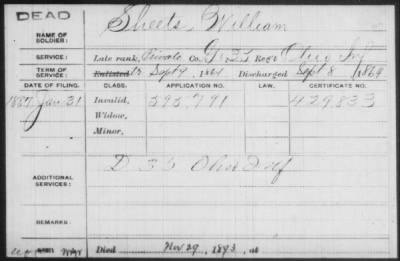 DEAD
NAME OF SOLDIER: Sheets, William
SERVICE: Late rank, Private Co. G, Reg't Ohio Inf
TERM OF SERVICE: Enlisted Sept 1861 Discharged Sept 8, 1864
DATE OF FILING. CLASS. APPLICATION NO. LAW. CERTIFICATE NO.
1887 Jan 31 Invalid, 595,791 429833
Widow,
Minor,
ADDITIONAL SERVICES: D 35 Ohio Inf
REMARKS:
Died Nov 29, 1893, at